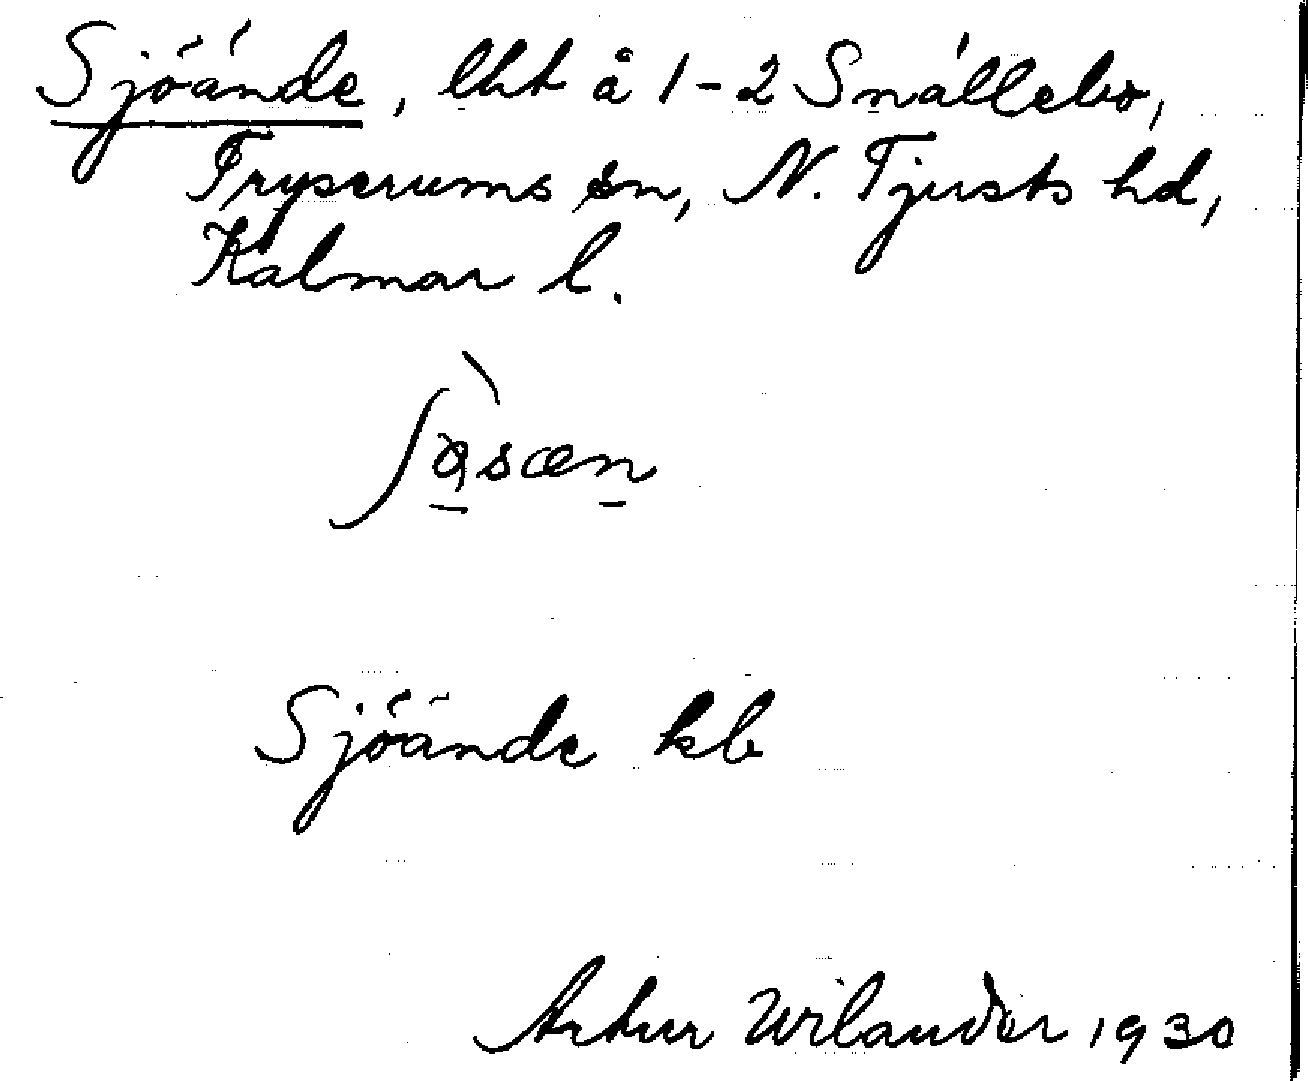 Sjöände, lht å 1-2 Snällebo,
Tryserums sn, N. Tjusts hd,
Kalmar l.
Sjöände kb
Artur Wilander 1930